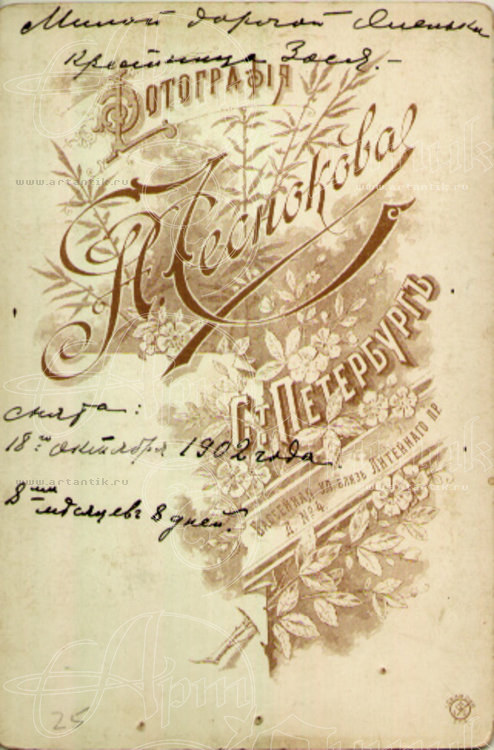 Милой дорогой Оленьки
крестница Зося.-
Фотографія
Н. Чеснокова
С т. Петербургъ
Бассейная ул. близь Литейнаго пр.
д. № 4.
снята:
18го октября 1902 года.
8ми мѣсяцевъ 8 дней.
25
www.artantik.ru
www.artantik.ru
www.artantik.ru
www.artantik.ru